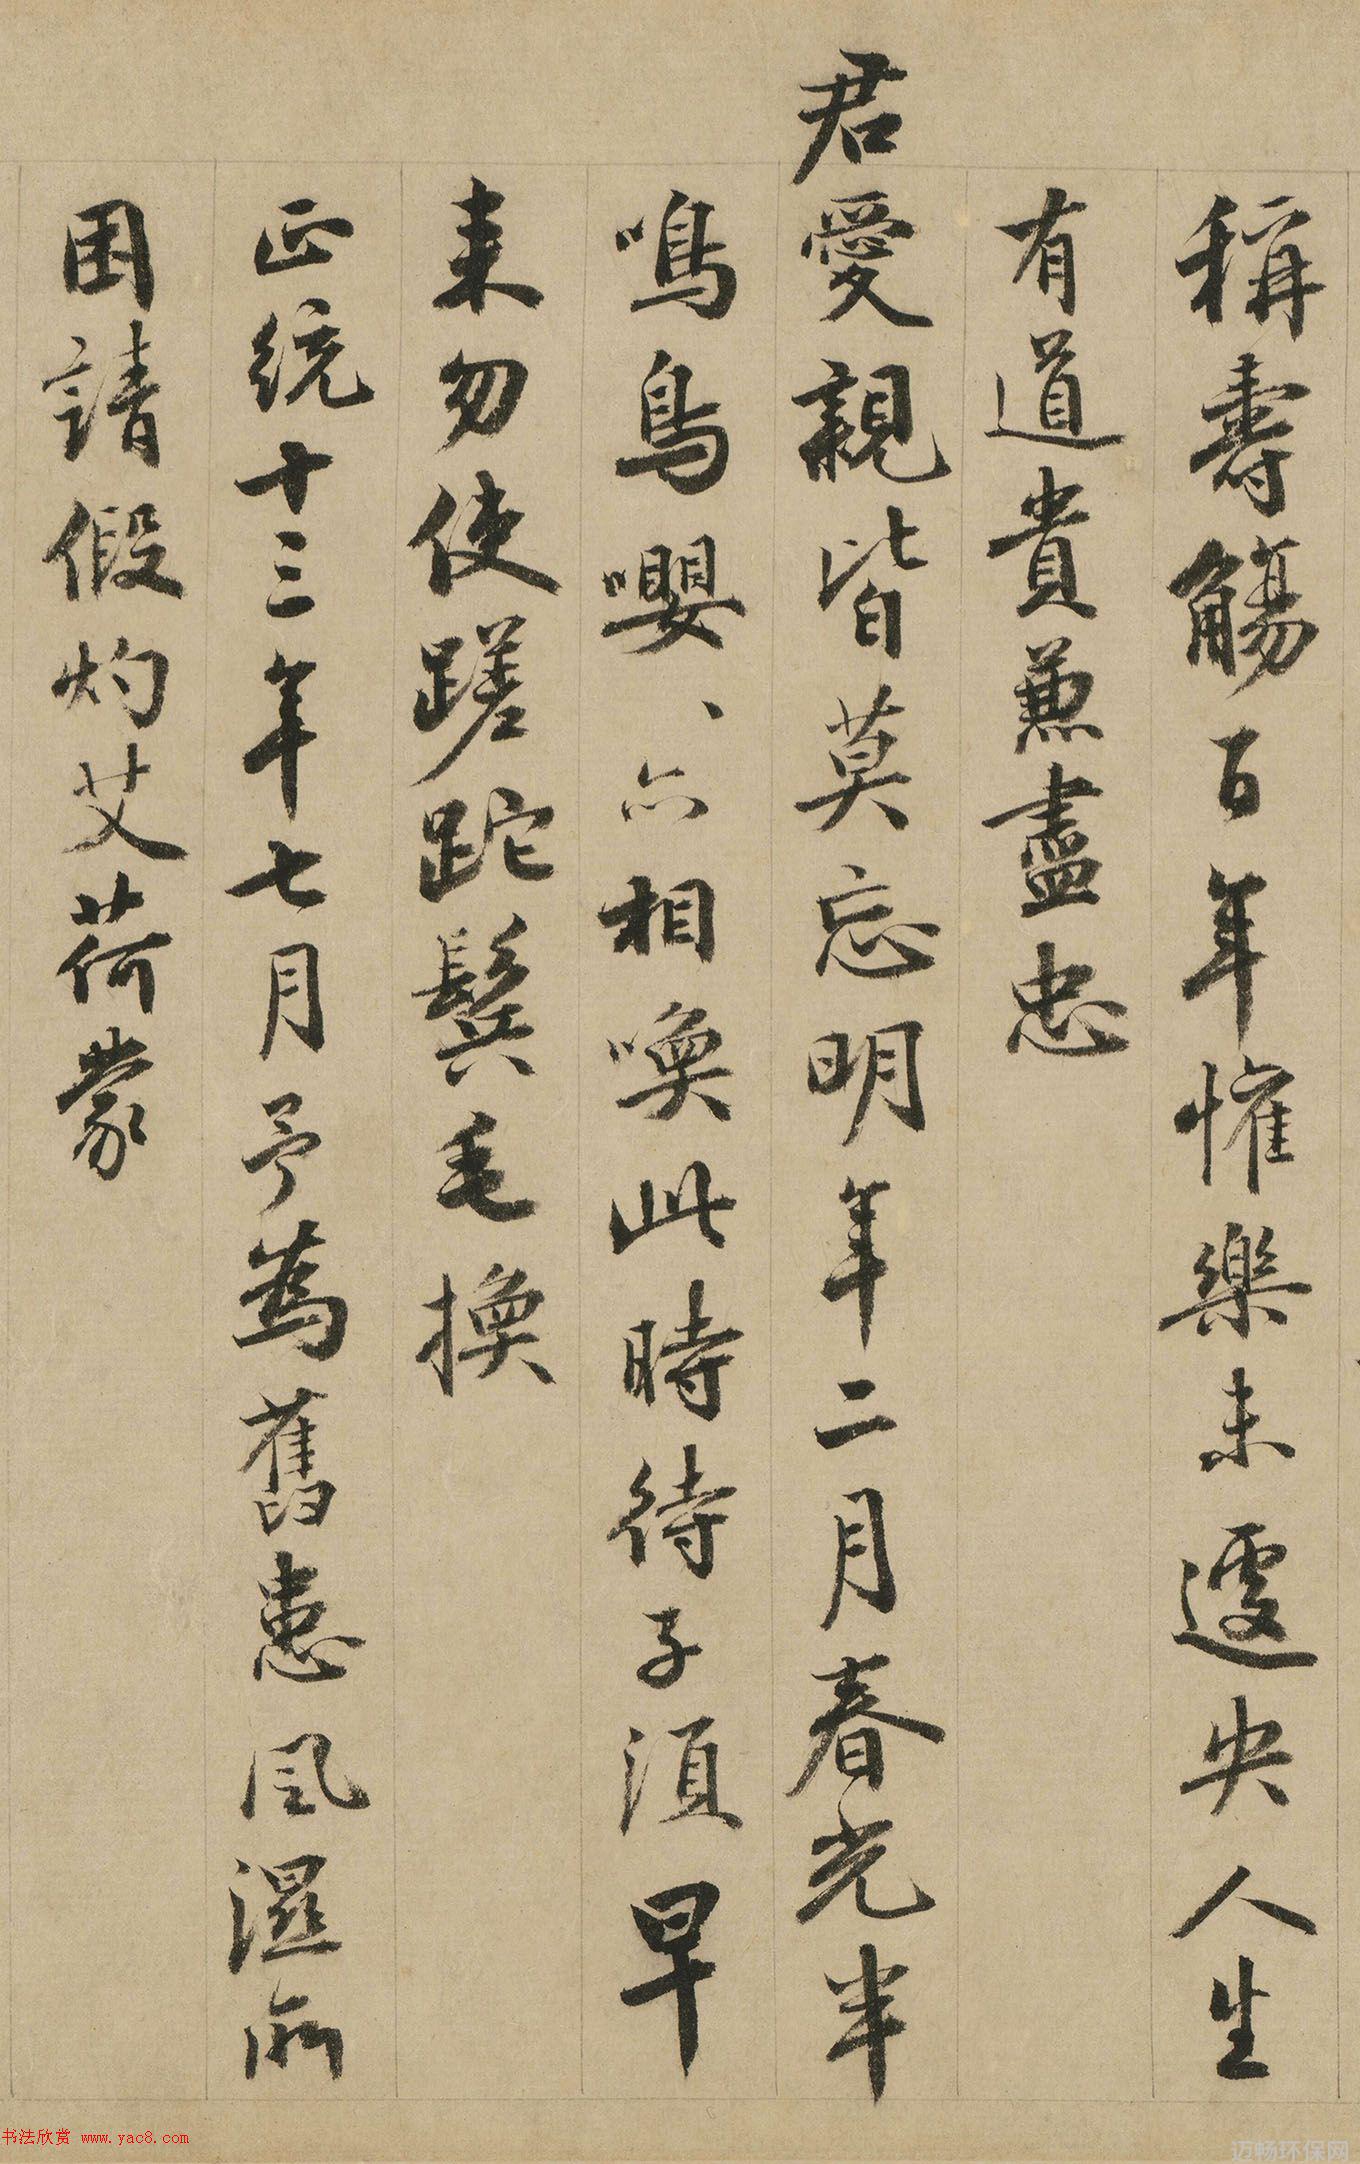 稱壽觴百年懽樂未遽央人生
有道貴兼盡忠
君愛親皆莫忘明年二月春光半
鳴鳥嚶、亦相喚此時待子須早
来勿使蹉跎鬢毛換
正統十三年七月予為舊患風濕所
困請假灼艾荷蒙
书法欣赏 www.yac8.com
迈畅环保网